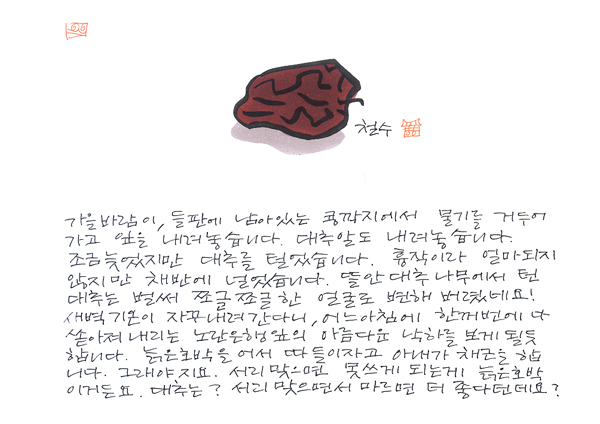 철수
가을바람이, 들판에 남아있는 콩깍지에서 물기를 거두어
가고 잎을 내려놓습니다. 대추알도 내려놓습니다.
조금늦었지만 대추를 털었습니다. 흉작이라 얼마되지
않지만 채반에 널었습니다. 뜰안 대추나무에서 턴
대추는 벌써 쪼글쪼글한 얼굴로 변해 버렸네요!
새벽기온이 자꾸내려간다니, 어느아침에 한꺼번에 다
쏟아져 내리는 노란은행잎의 아름다운 낙하를 보게될듯
합니다. 늙은호박을 어서 따 들이자고 아내가 채근을 합
니다. 그래야지요. 서리맞으면 못쓰게 되는게 늙은호박
이거든요. 대추는? 서리 맞으면서 마르면 더 좋다던데요?